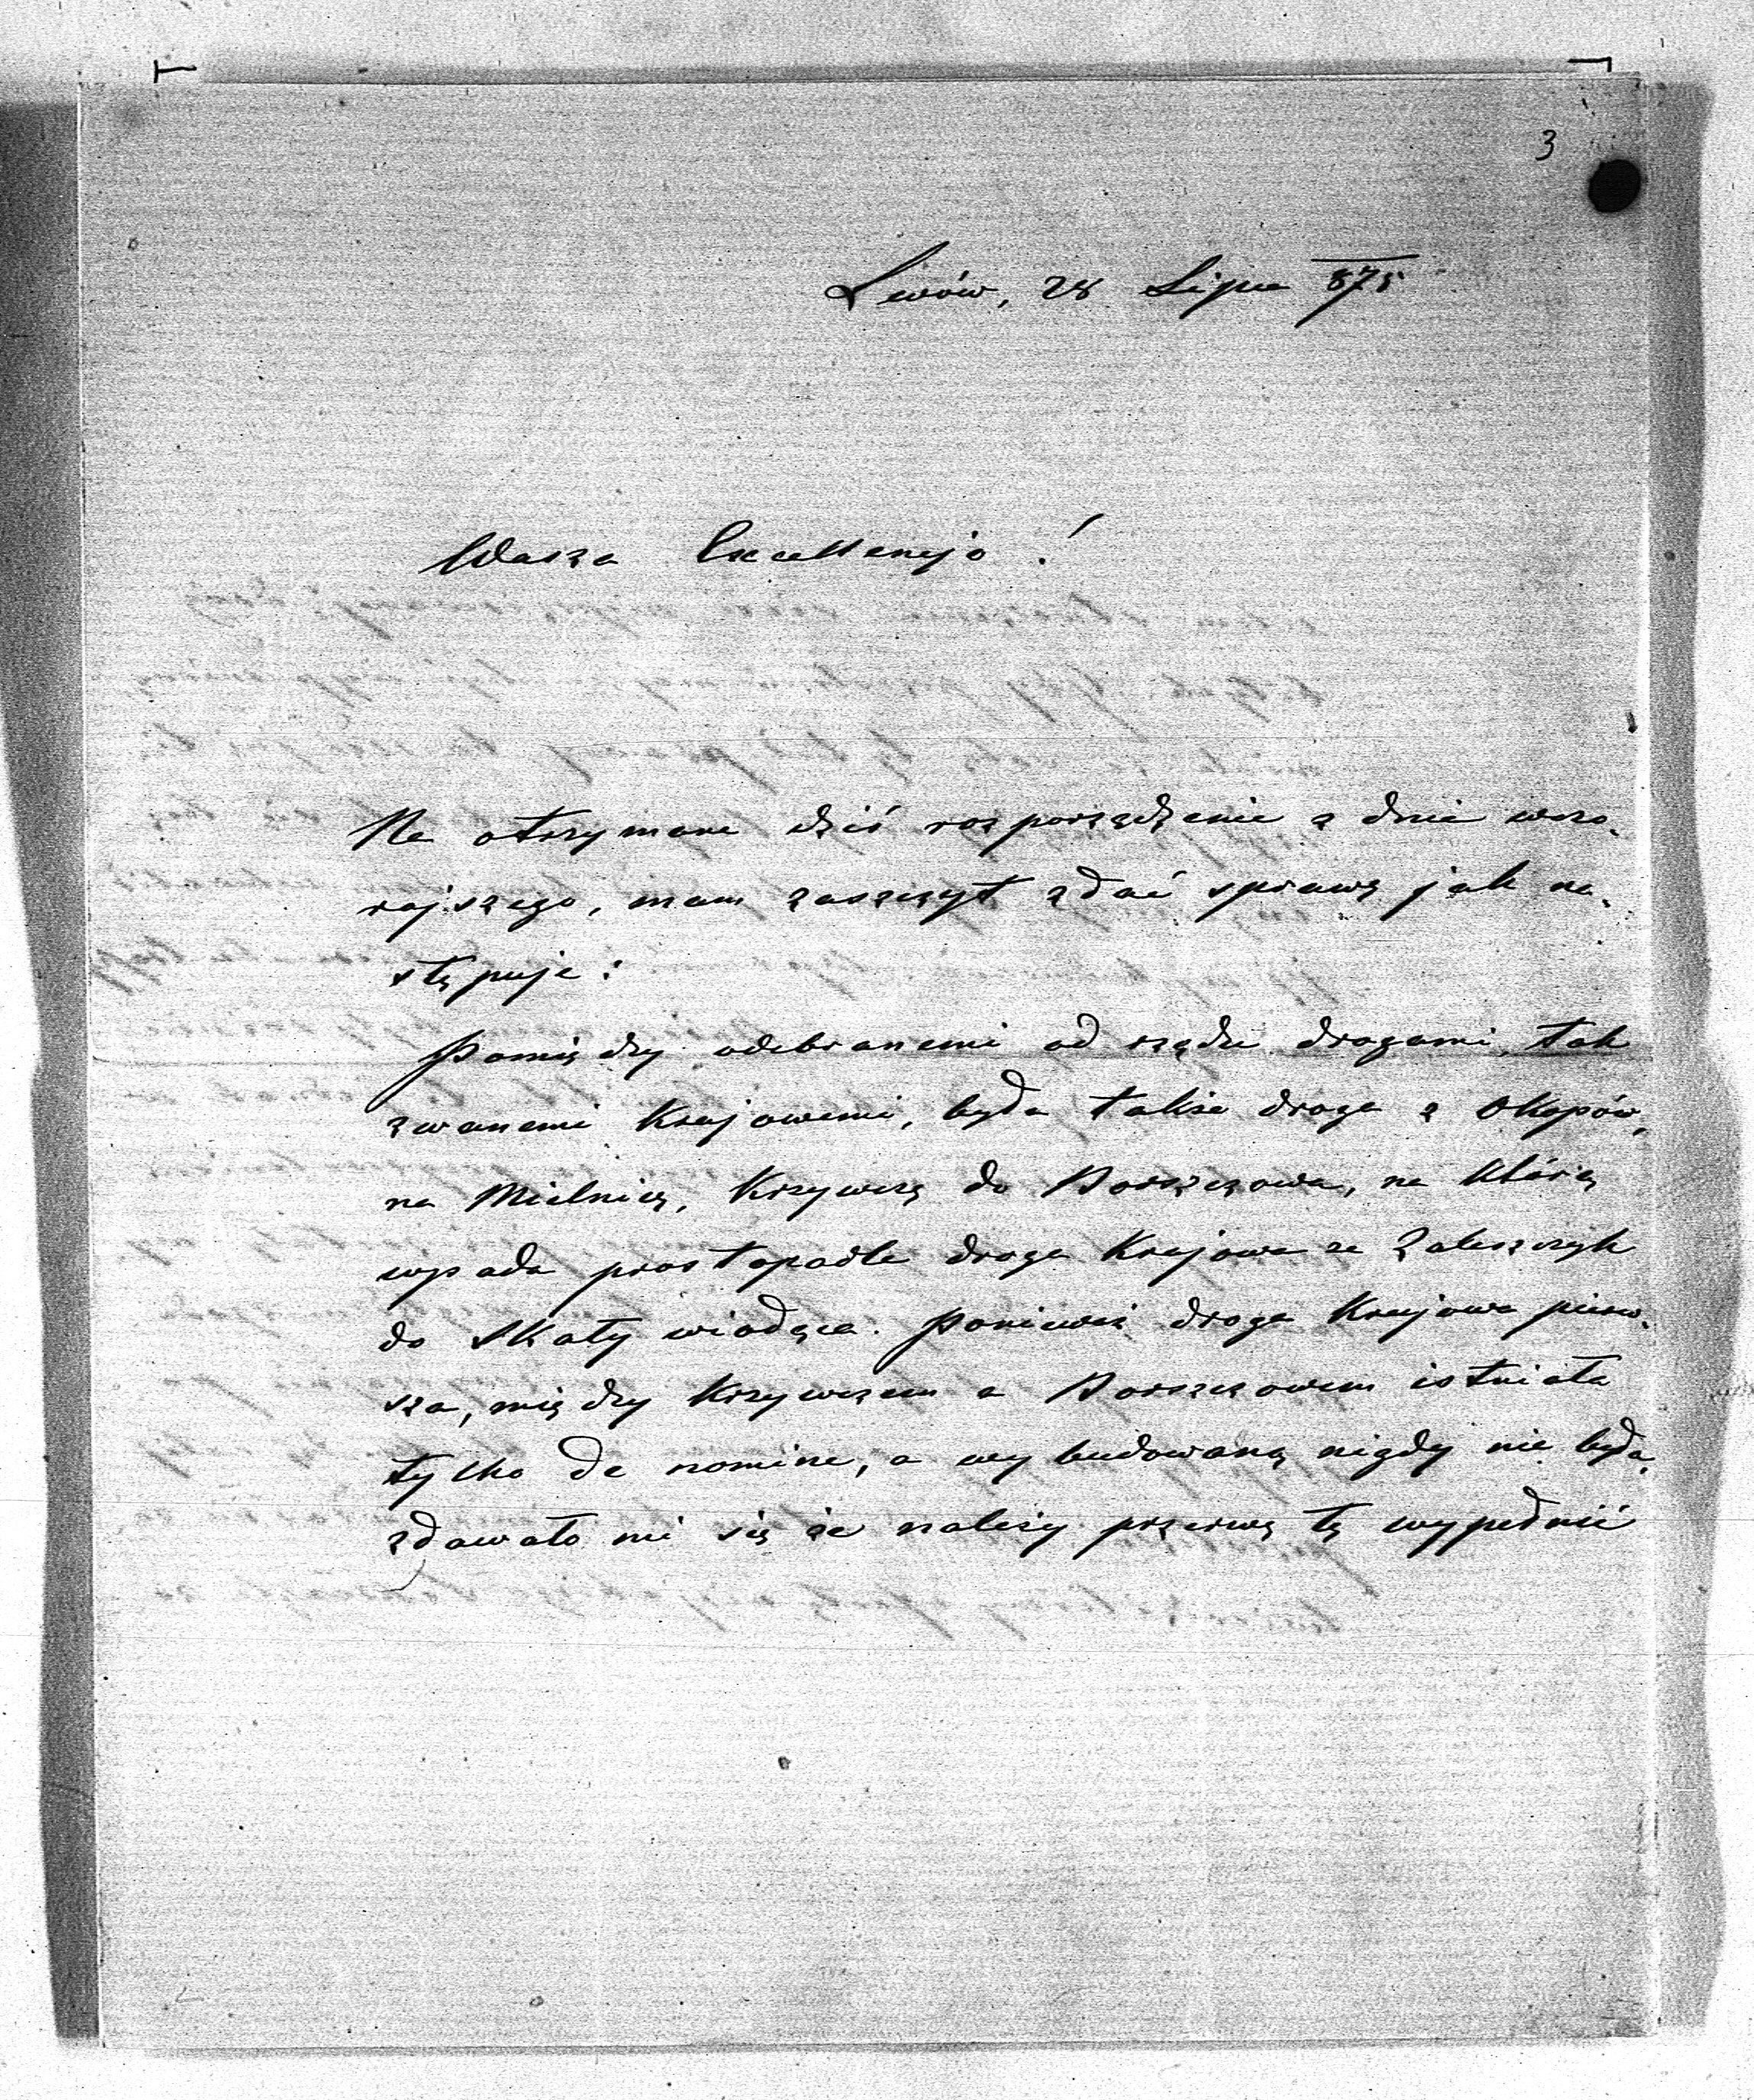 3
Lwów, 28 Lipca 875
Wasza Excellencyo!
Na otrzymane dziś rozporządzenie z dnia wczo-
rajszego, mam zaszczyt zdać sprawę jak na-
stępuje:
Pomiędzy odebranemi od rządu drogami tak
zwanemi Krajowemi, była także droga z Okopów,
na Mielnicę, Krzywczę do Borszczowa, na którą
wpada prostopadle droga Krajowa ze Zaleszczyk
do Skały wiodąca. Ponieważ droga Krajowa pierw-
sza, między Krzywczem a Borszczowem istniała
tylko de nomine, a wybudowaną nigdy nie była,
zdawało mi się że należy przerwę tę wypełnić